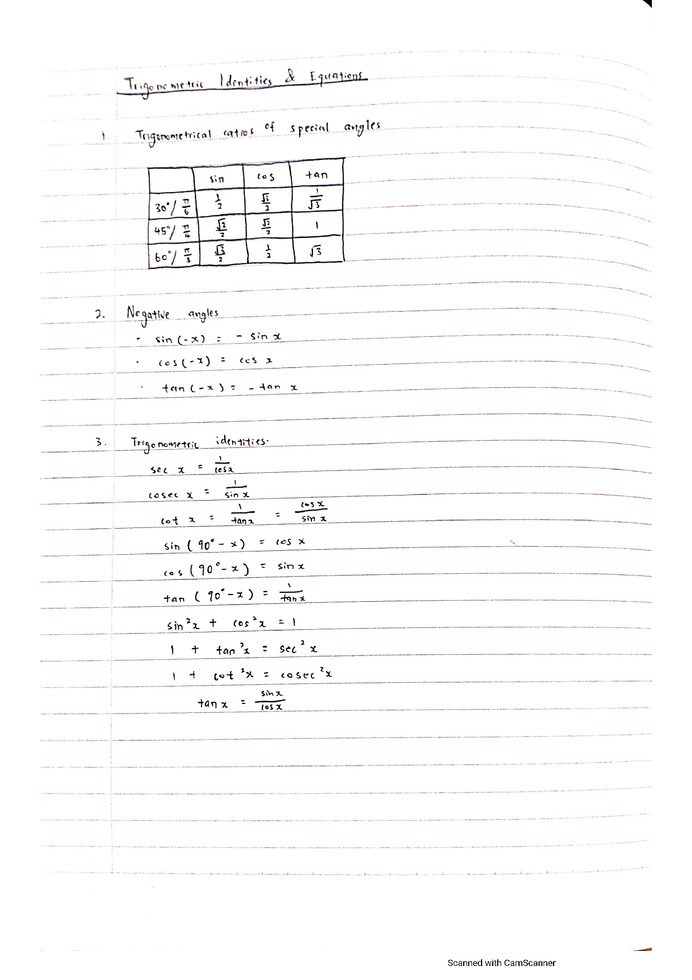 Trigonometric Identities & Equations
1 Trigonometrical ratios of special angles
sin cos tan
30°/ π/6 1/2 √3/2 1/√3
45°/ π/4 √2/2 √2/2 1
60°/ π/3 √3/2 1/2 √3
2. Negative angles
- sin (-x) = - sin x
· cos (-x) = cos x
· tan (-x) = - tan x
3. Trigonometric identities.
sec x = 1/cos x
cosec x = 1/sin x
cot x = 1/tan x = cos x/sin x
sin (90° - x) = cos x
cos (90° - x) = sin x
tan (90° - x) = 1/tan x
sin²x + cos²x = 1
1 + tan²x = sec² x
1 + cot²x = cosec²x
tan x = sin x/cos x
Scanned with CamScanner